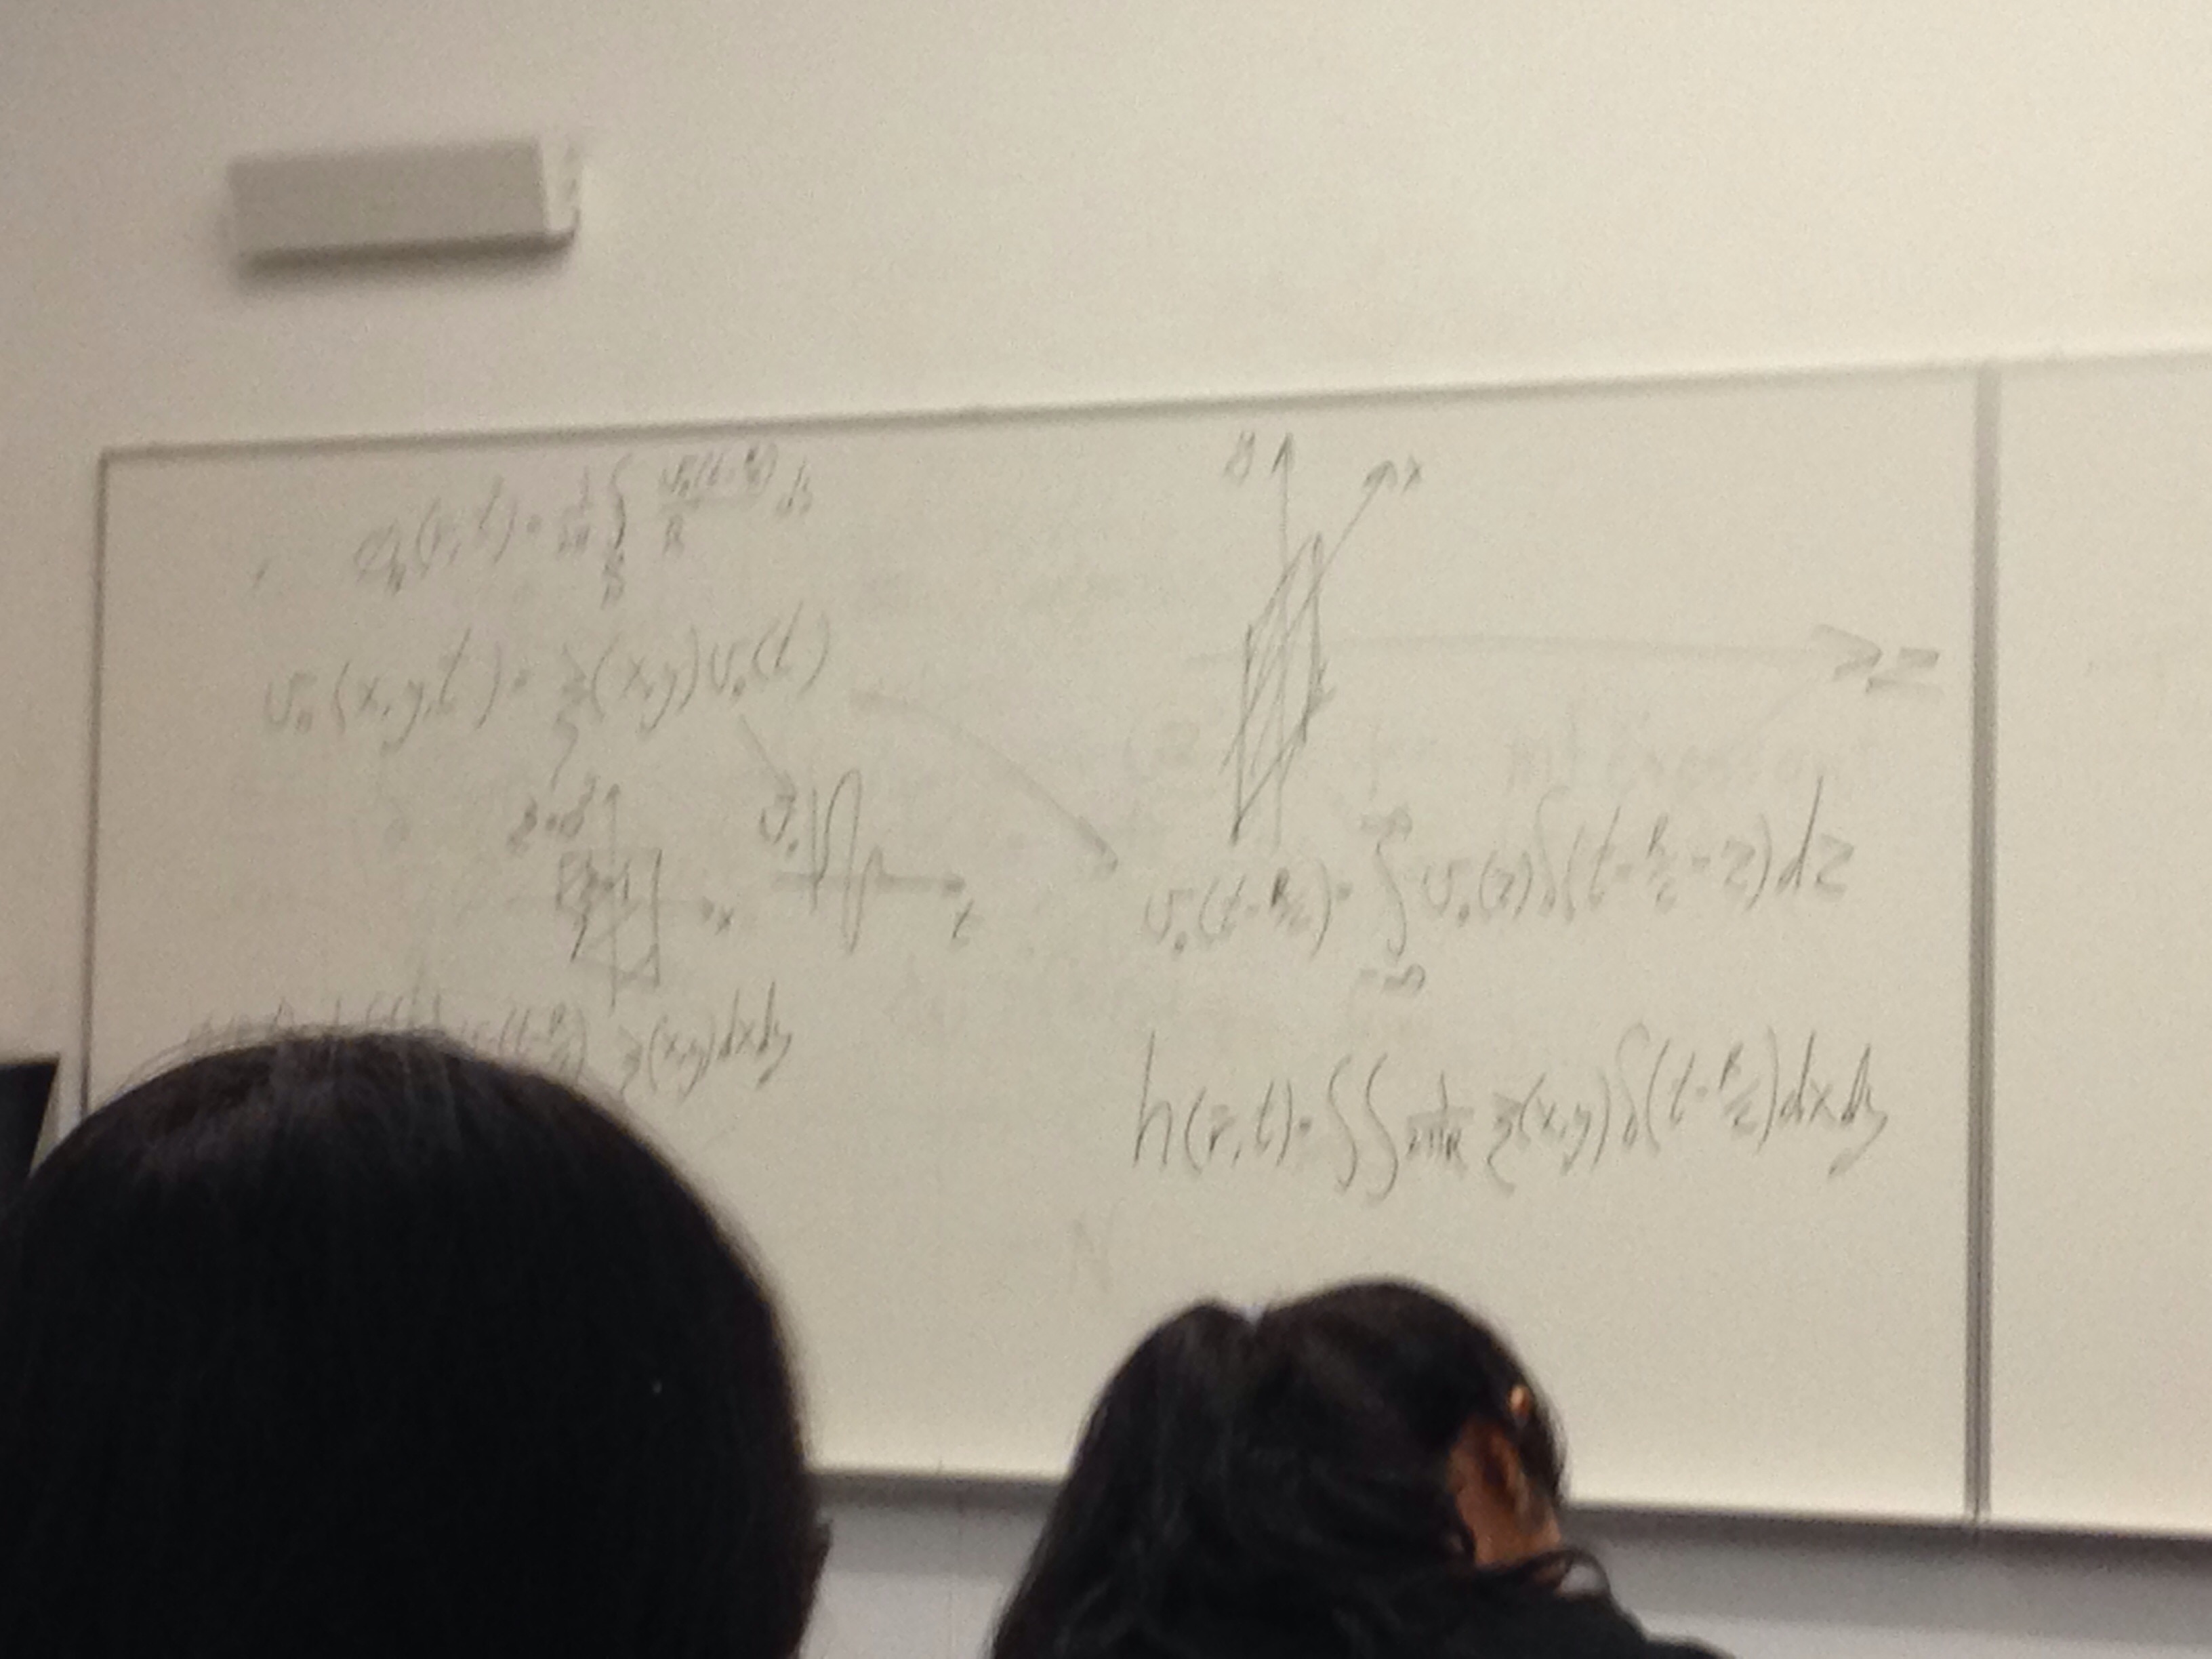 φ(r, t) = 1/2π ∫_S v₀(t - R/c)/R ds
v₀(x, y, t) = ξ(x, y) v₀(t)
x
v₀
t
v₀(t - R/c) ξ(x, y) dx dy
y
x
z
v₀(t - R/c) = ∫_{-∞}^{∞} v₀(τ) δ(t - R/c - τ) dτ
h(r, t) = ∫∫ 1/2πR ξ(x, y) δ(t - R/c) dx dy